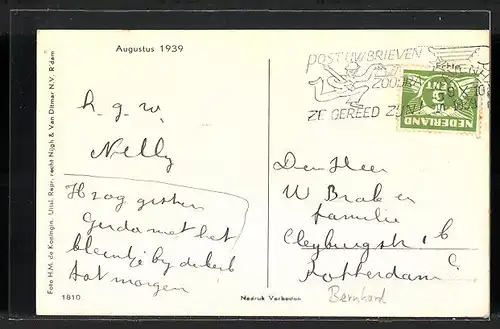 Augustus 1939
POST UW BRIEVEN
ZOODRA
ZE GEREED ZIJN
NEDERLAND
5
CENT
h. g. w.
Nelly
H zag gisten
Gerda met het
kleintje bij de kerk
tot morgen
Den Heer
W Brak en
familie
Cleyburgstr 1 b
Rotterdam C
Bernhard
Foto H.M. de Koningin. Uitsl. Repr. recht Nijgh & Van Ditmar N.V. R'dam
1810
Nadruk Verboden